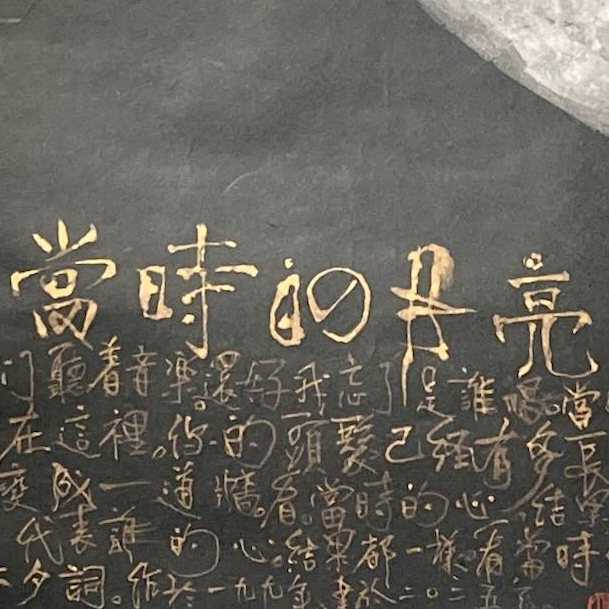 當時的月亮
聽着音樂。還好我忘了是誰唱。當
在這裡。你的頭髮已經有多長
變成一道牆。看。當時的心結
代表誰的心。結果都一樣。看。當時
夕詞。作於一九九 書於二〇二五